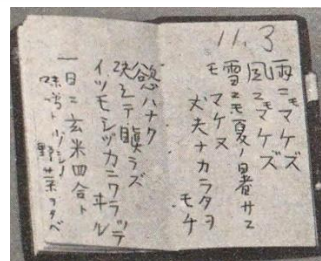 11.3
雨ニモマケズ
風ニモマケズ
雪ニモ夏ノ暑サニ
モ マケヌ
丈夫ナカラダヲ
モチ
慾ハナク
決シテ瞋ラズ
イツモシヅカニワラッテ
ヰル
一日ニ玄米四合ト
味噌ト少シノ
野菜ヲタベ